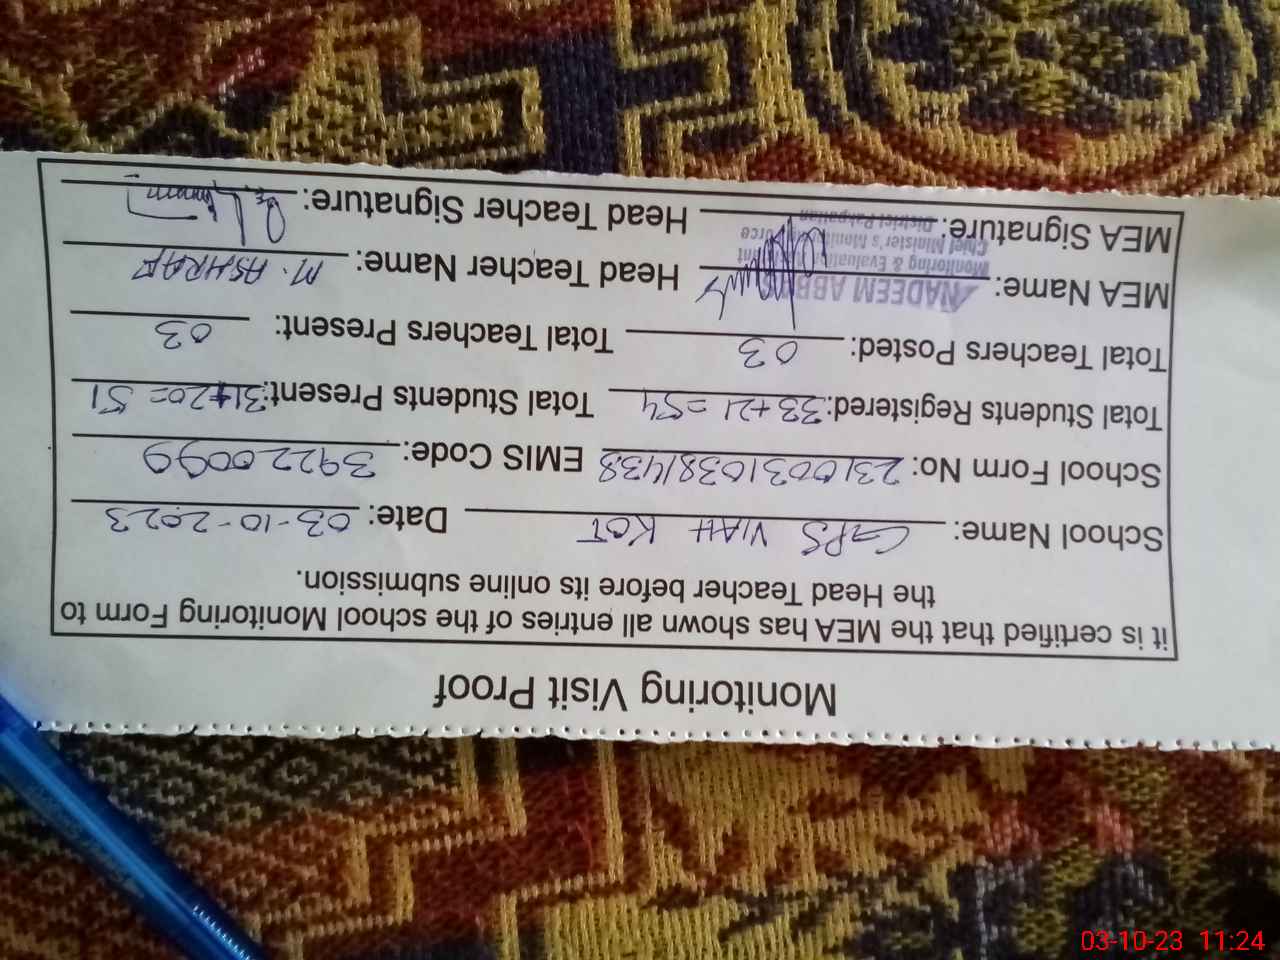 Monitoring Visit Proof
it is certified that the MEA has shown all entries of the school Monitoring Form to
the Head Teacher before its online submission.
School Name: GPS VIAH KOT Date: 03-10-2023
School Form No: 23100310381438 EMIS Code: 39220099
Total Students Registered: 33+21=54 Total Students Present: 31+20=51
Total Teachers Posted: 03 Total Teachers Present: 03
MEA Name: NADEEM ABBAS Head Teacher Name: M. ASHRAF
Monitoring & Evaluation Assistant
Chief Minister's Monitoring Force
District Pakpattan
MEA Signature: Head Teacher Signature:
03-10-23 11:24